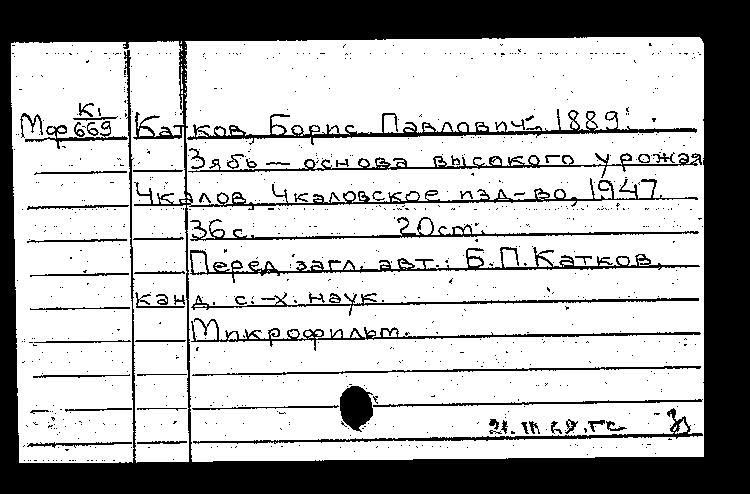 Мф К1/669 Катков, Борис Павлович, 1889.
Зябь — основа высокого урожая
Чкалов, Чкаловское изд-во, 1947.
36 с. 20 cm.
Перед загл. авт.: Б.П. Катков,
канд. с.-х. наук.
Микрофильм.